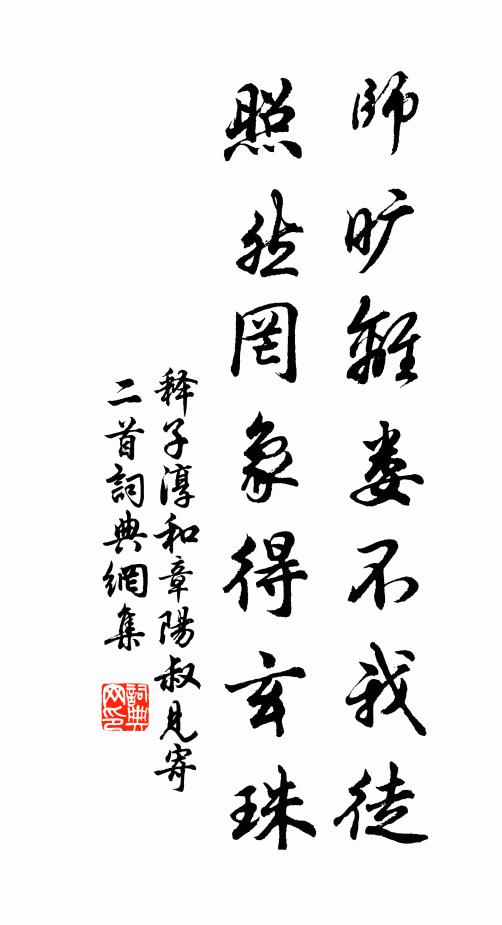 師曠離婁不我徒
照然罔象得玄珠
释子淳和章陽叔見寄
二首詞典網集
詞典
网印